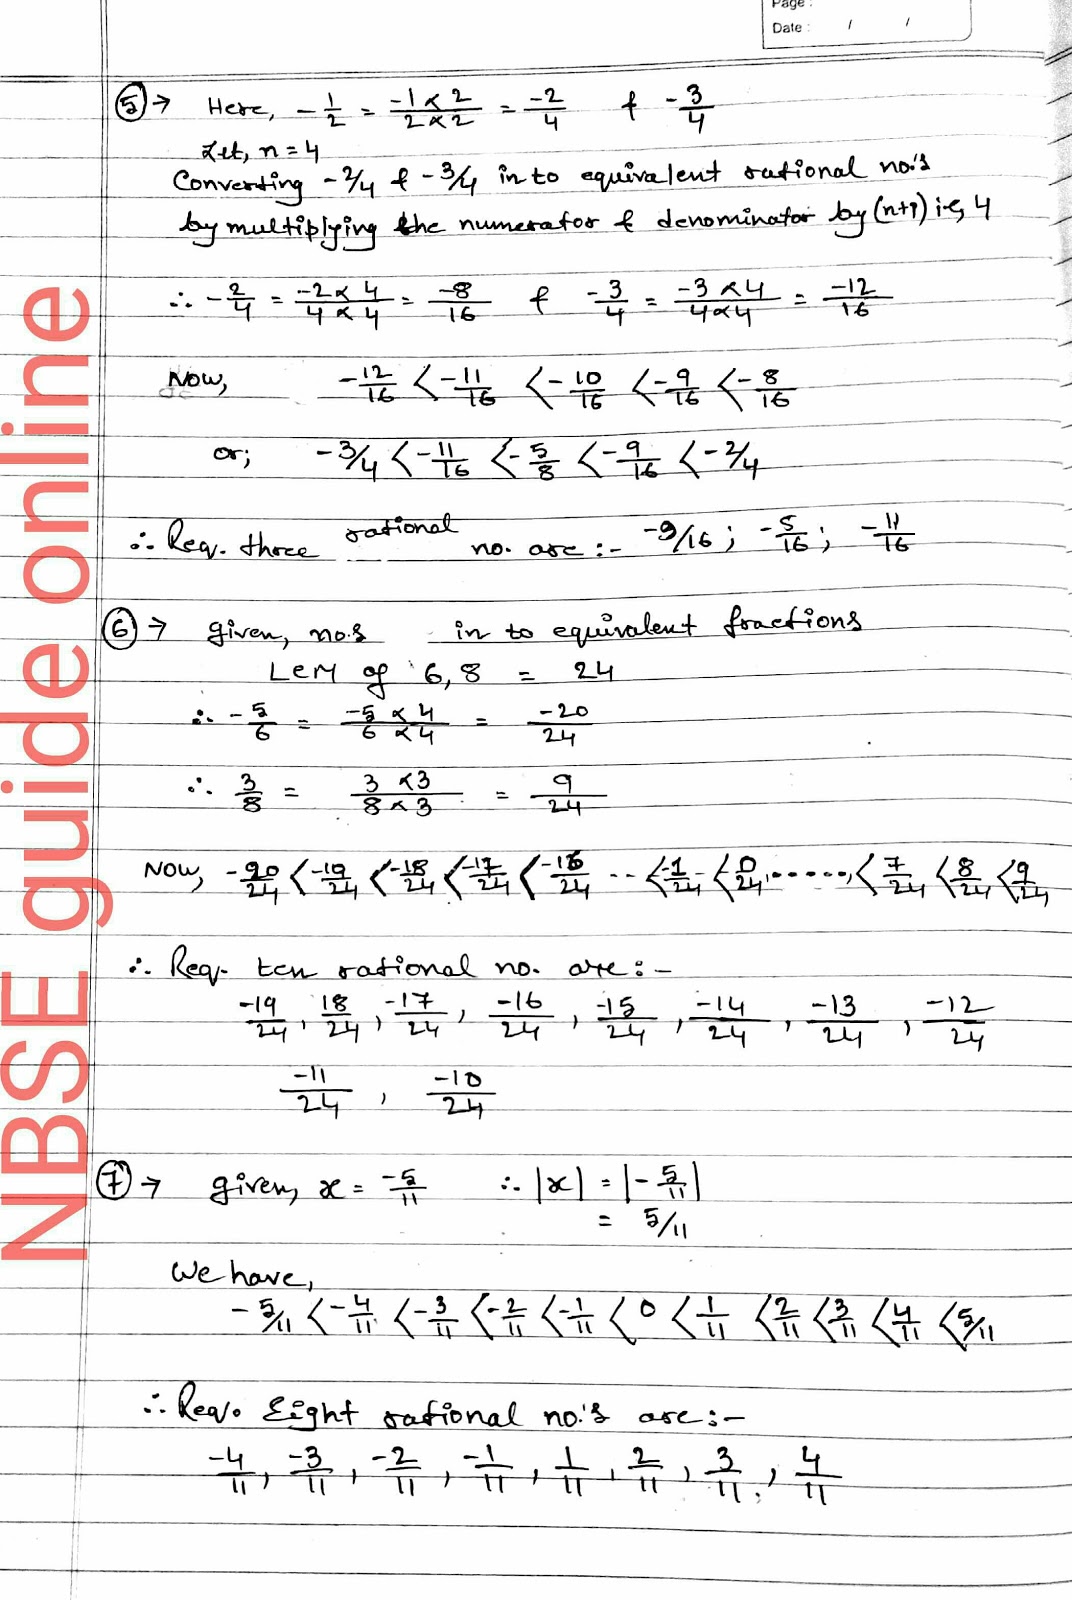 Page :
Date : / /
⑤→ Here, -1/2 = -1×2/2×2 = -2/4 & -3/4
Let, n = 4
Converting -2/4 & -3/4 in to equivalent rational no.'s
by multiplying the numerator & denominator by (n+1) i.e, 4
∴ -2/4 = -2×4/4×4 = -8/16 & -3/4 = -3×4/4×4 = -12/16
Now, -12/16 < -11/16 < -10/16 < -9/16 < -8/16
or; -3/4 < -11/16 < -5/8 < -9/16 < -2/4
∴ Req. three rational no. are :- -9/16 ; -5/16 ; -11/16
⑥→ given, no.s in to equivalent fractions
LCM of 6, 8 = 24
∴ -5/6 = -5×4/6×4 = -20/24
∴ 3/8 = 3×3/8×3 = 9/24
Now, -20/24 < -19/24 < -18/24 < -17/24 < -16/24 .. < -1/24 < 0/24 ...... < 7/24 < 8/24 < 9/24
∴ Req. ten rational no. are :-
-19/24, 18/24, -17/24, -16/24, -15/24, -14/24, -13/24, -12/24
-11/24, -10/24
⑦→ given, x = -5/11 ∴ |x| = |-5/11|
= 5/11
We have,
-5/11 < -4/11 < -3/11 < -2/11 < -1/11 < 0 < 1/11 < 2/11 < 3/11 < 4/11 < 5/11
∴ Req. Eight rational no.'s are :-
-4/11, -3/11, -2/11, -1/11, 1/11, 2/11, 3/11, 4/11
NBSE guide online